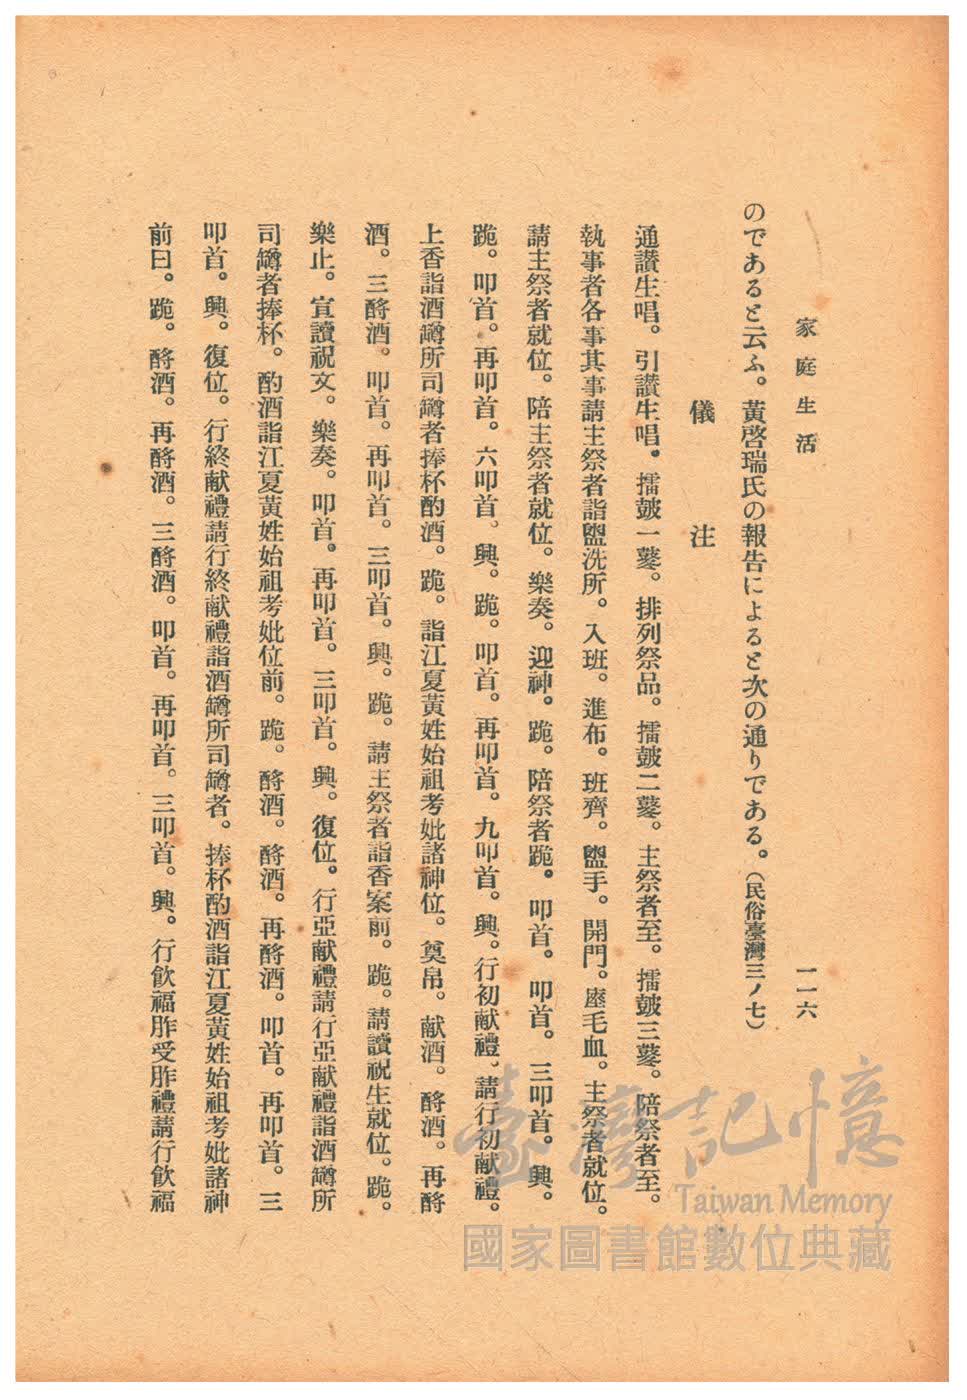 家庭生活
一一六
のであると云ふ。黃啓瑞氏の報告によると次の通りである。(民俗臺灣三ノ七)
儀注
通讃生唱。引讃生唱。擂皷一鼕。排列祭品。擂皷二鼕。主祭者至。擂皷三鼕。陪祭者至。
執事者各事其事請主祭者詣盥洗所。入班。進布。班齊。盥手。開門。座毛血。主祭者就位。
請主祭者就位。陪主祭者就位。樂奏。迎神。跪。陪祭者跪。叩首。叩首。三叩首。興。
跪。叩首。再叩首。六叩首。興。跪。叩首。再叩首。九叩首。興。行初献禮、請行初献禮。
上香詣酒罇所司罇者捧杯酌酒。跪。詣江夏黃姓始祖考妣諸神位。奠帛。献酒。酹酒。再酹
酒。三酹酒。叩首。再叩首。三叩首。興。跪。請主祭者詣香案前。跪。請讀祝生就位。跪。
樂止。宣讀祝文。樂奏。叩首。再叩首。三叩首。興。復位。行亞献禮請行亞献禮詣酒罇所
司罇者捧杯。酌酒詣江夏黃姓始祖考妣位前。跪。酹酒。酹酒。再酹酒。叩首。再叩首。三
叩首。興。復位。行終献禮請行終献禮詣酒罇所司罇者。捧杯酌酒詣江夏黃姓始祖考妣諸神
前曰。跪。酹酒。再酹酒。三酹酒。叩首。再叩首。三叩首。興。行飲福胙受胙禮請行飲福
臺灣記憶
Taiwan Memory
國家圖書館數位典藏